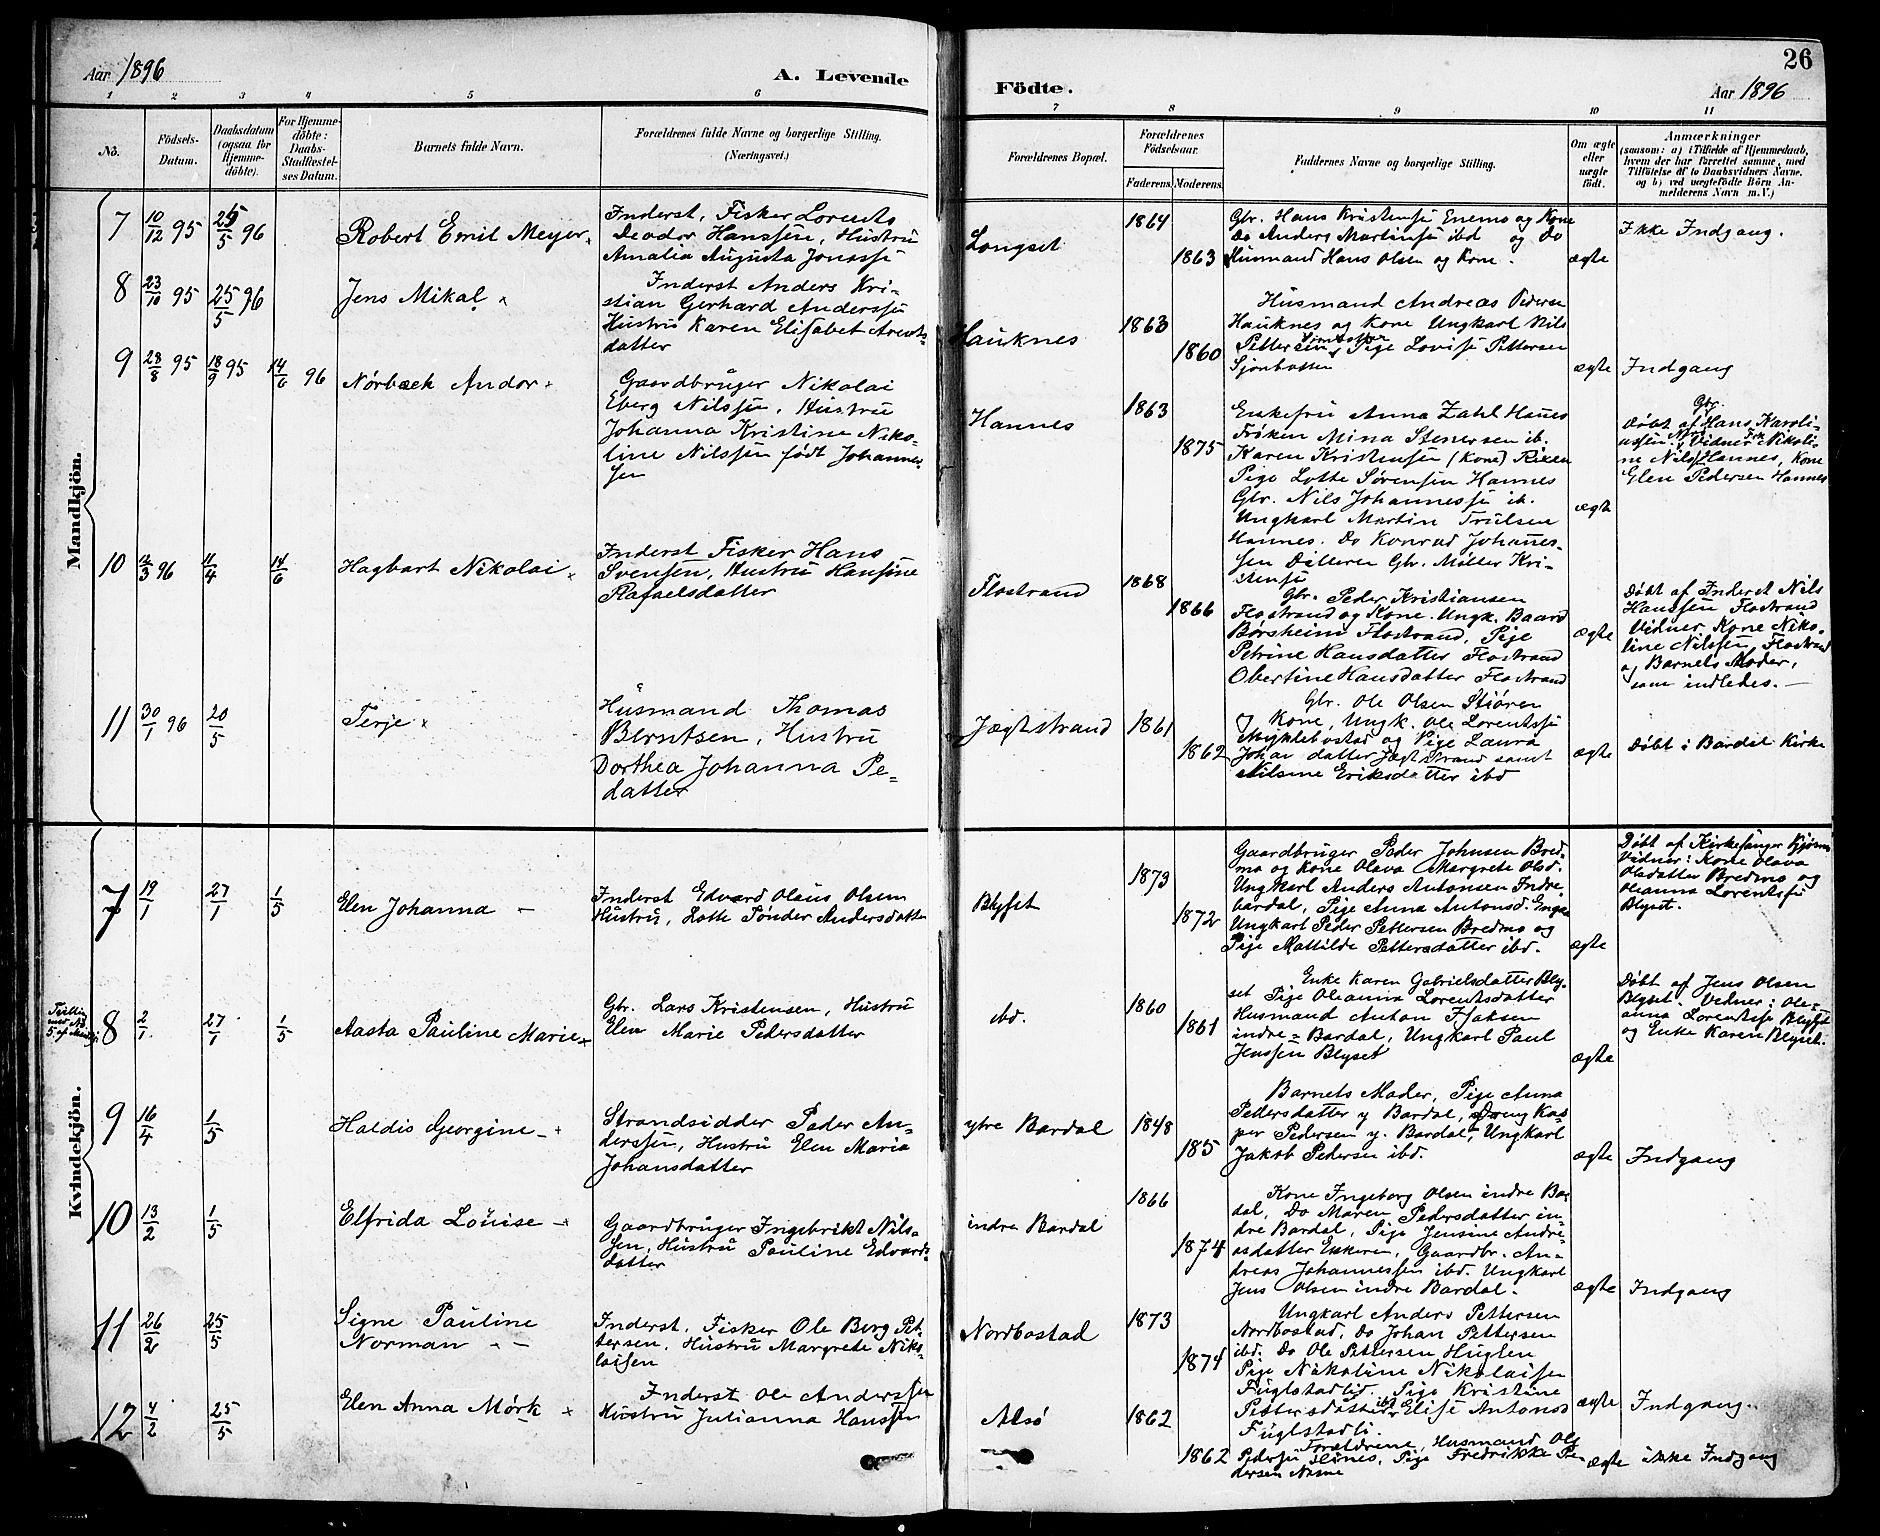 Aar 1896
A. Levende
Födte.
26
Aar 1896
1 2 3 4 5 6 7 8 9 10 11
No.
Födsels-
Datum.
Daabsdatum
(ogsaa for
Hjemme-
döbte).
For Hjemme-
döbte:
Daabs-
Stadfæstel-
ses Datum.
Barnets fulde Navn.
Forældrenes fulde Navne og borgerlige Stilling.
(Næringsvei.)
Forældrenes Bopæl.
Forældrenes
Födselsaar.
Faderens.
Moderens.
Faddernes Navne og borgerlige Stilling.
Om ægte
eller
uægte
födt.
Anmærkninger
(saasom: a) i Tilfælde af Hjemmedaab,
hvem der har forrettet samme, med
Tilföielse af to Daabsvidners Navne,
og b) ved uægtefödte Börn An-
melderens Navn m.V.)
Mandkjön.
7 10/12 95 25/5 96
Robert Emil Meyer
Inderst, Fisker Lorents
Deodor Hanssen, Hustru
Amalia Augusta Jonasse
Longset
1864
1863
Gbr. Hans Kristensen Enemo og Kone
Do Anders Martinsen ibd og Do
Husmand Hans Olsen og Kone.
ægte
Ikke Indgang.
8 23/10 95 25/5 96
Jens Mikal
Inderst Anders Kri-
stian Gerhard Anderssen
Hustru Karen Elisabet Arents-
datter
Hauknes
1863
1860
Husmand Andreas Pedersen
Hauknes og Kone Ungkarl Nils
Pettersen Pige Lovise Pettersen
Sjonbotten
ægte
Indgang
9 28/8 95 18/9 95 14/6 96
Nørbech Andor
Gaardbruger Nikolai
Eberg Nilssen, Hustru
Johanna Kristine Niko-
line Nilssen født Johannes-
sen
Hannes
1863
1875
Enkefru Anna Zahl Hannes
Frøken Mina Stenersen ib.
Karen Kristensen (Kone)
Pige Lotte Sørensen Hannes
Gbr. Nils Johannessen ib.
Ungkarl Martin Trulsen
Hannes. Do Konrad Johannes-
sen Gbr. Møller Kri-
stensen
ægte
Gbr.
Døbt af Hans Karoli-
ussen. Vidner: Nikoli-
ne Nilss Hannes, Kone
Elen Pedersen Hannes
10 12/3 96 11/4 14/6
Hagbart Nikolai
Inderst Fisker Hans
Svensen, Hustru Hansine
Rafaelsdatter
Flostrand
1868
1866
Gbr. Peder Kristiansen
Flostrand og Kone. Ungk. Baard
Børsheim Flostrand, Pige
Petrine Hansdatter Flostrand
Obertine Hansdatter Flostrand
ægte
Døbt af Inderst Nils
Hanssen Flostrand
Vidner Kone Niko-
line Nilssen Flostrand
og Barnets Moder,
som indledes.
11 30/1 96 20/5
Terje
Husmand Thomas
Berntsen, Hustru
Dorthea Johanna Pe-
datter
Jægtstrand
1861
1862
Gbr. Ole Olsen
og Kone, Ungk. Ole Lorentsse
Myklebostad og Pige Laura
Johan datter Jægtstrand samt
Nilsine Eriksdatter ibd
ægte
Døbt i Bardal Kirke
Kvindekjön.
7 19/1 27/1 1/5
Elen Johanna
Inderst Edvard Olaus Olsen
Hustru, Lotte Tønder Andersdatter
Blyset
1873
1872
Gaardbruger Peder Johnsen Bred-
mo og Kone Olava Margrete Olsd.
Ungkarl Anders Antonsen Indre
bardal, Pige Anna Antonsd.
Ungkarl Peder Pettersen Bredmo og
Pige Mattilde Pettersdatter ibd.
ægte
Døbt af Kirkesanger
Vidner: Kone Olava
Olsdatter Bredmo og
Oleanna Lorentsse
Blyset.
8 2/1 27/1 1/5
Aasta Pauline Marie
Gbr. Lars Kristensen, Hustru
Elen Marie Pedersdatter
ibd.
1860
1861
Enke Karen Gabrielsdatter Bly-
set Pige Oleanna Lorentsdatter
Husmand Anton Isaksen
indre-Bardal, Ungkarl Paul
Jenssen Blyset
ægte
Døbt af Jens Olsen
Blyset. Vidner: Ole-
anna Lorentsse Blyset
og Enke Karen Blyset.
9 16/4 1/5
Haldis Georgine
Strandsidder Peder An-
derssen, Hustru Elen Maria
Johansdatter
ytre Bardal
1848
185
Barnets Moder, Pige Anna
Pedersdatter y Bardal, Dreng Kas-
per Pedersen y. Bardal, Ungkarl
Jakob Pedersen ibd.
ægte
Indgang
10 13/2 1/5
Elfrida Louise
Gaardbruger Ingebrikt Nils-
sen, Hustru Pauline Edvards-
datter
indre Bardal
1866
1874
Kone Ingeborg Olsen indre Bar-
dal, Do Maren Pedersdatter in-
dre Bardal, Pige Jensine Andre-
asdatter Gaardbr. An-
dreas Johannessen ibd. Ungkarl
Jens Olsen indre Bardal.
ægte
Indgang
11 26/2 25/5
Signe Pauline
Norman
Inderst. Fisker Ole Berg Pet-
tersen, Hustru Margrete Niko-
laisen
Nordbostad
1873
1874
Ungkarl Anders Pettersen
Nordbostad, Do Johan Pettersen
ibd. Do Ole Pettersen Huglen
Pige Nikoline Nikolaisen
Fuglstadlid. Pige Kristine
Pettersdatter ibd Elise Antonsd
Fuglstadli.
ægte
Indgang.
12 4/2 25/5
Elen Anna Mørk
Inderst Ole Anderssen
Hustru Julianna Hanssen
Alsö
1862
1862
Forældrene, Husmand Ole
Pedersen Pige Fredrikke Pe-
dersen
ægte
ikke Indgang